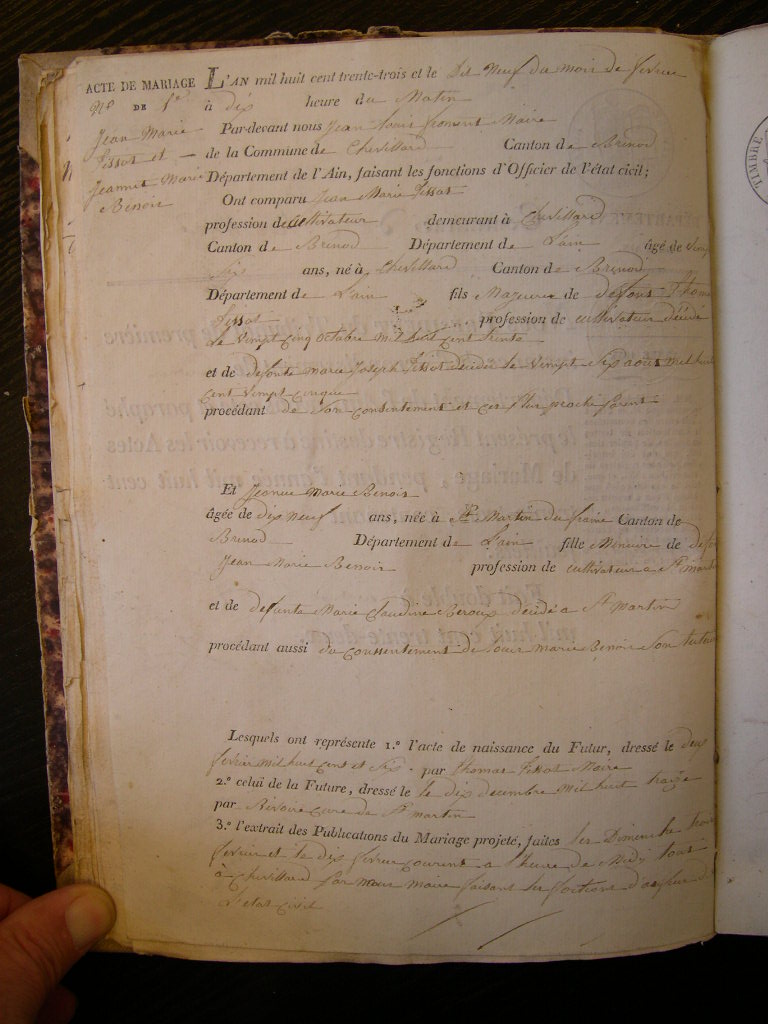 ACTE DE MARIAGE
N.o DE 1er
Jean Marie
Tissot et
Jeanne Marie
Benoit
L'AN mil huit cent trente-trois et le Dix Neuf du mois de fevrier
à dix heure du Matin
Par-devant nous Jean Louis froment Maire
de la Commune de Chevillard Canton de Brenod
Département de l'Ain, faisant les fonctions d'Officier de l'état civil;
Ont comparu Jean Marie Tissot
profession de Cultivateur demeurant à Chevillard
Canton de Brenod Département de L'ain âgé de
Six ans, né à Chevillard Canton de Brenod
Département de L'ain fils Majeure de defont Thomas
Tissot profession de cultivateur décédé
Le Vingt Cinq Octobre mil huit Cent trente
et de defonte marie Joseph Tissot décédée le Vingt Six aout mil huit
Cent Vingt Cinque
procédant de Son Consentement et ces plus proche parent
Et Jeanne Marie Benoit
âgée de dix neuf ans, née à St Martin du fraine Canton de
Brenod Département de L'ain fille Mineure de defont
Jean Marie Benoit profession de cultivateur a St martin
et de defunte Marie Claudine décédé a St martin
procédant aussi du Consentement de Marie Benoit Son tuteur
Lesquels ont représente 1.o l'acte de naissance du Futur, dressé le deux
févrir mil huit Cent et Six par thomas Tissot Maire
2.o celui de la Future, dressé le le dix decembre mil huit traize
par Cure de St martin
3.o l'extrait des Publications du Mariage projeté, faites les Dimanche trois
fevrier et le dix fevrier Courent a l'heure de Midy
a Chevillard par nous maire faisant les d'officier de
L'etat Civil